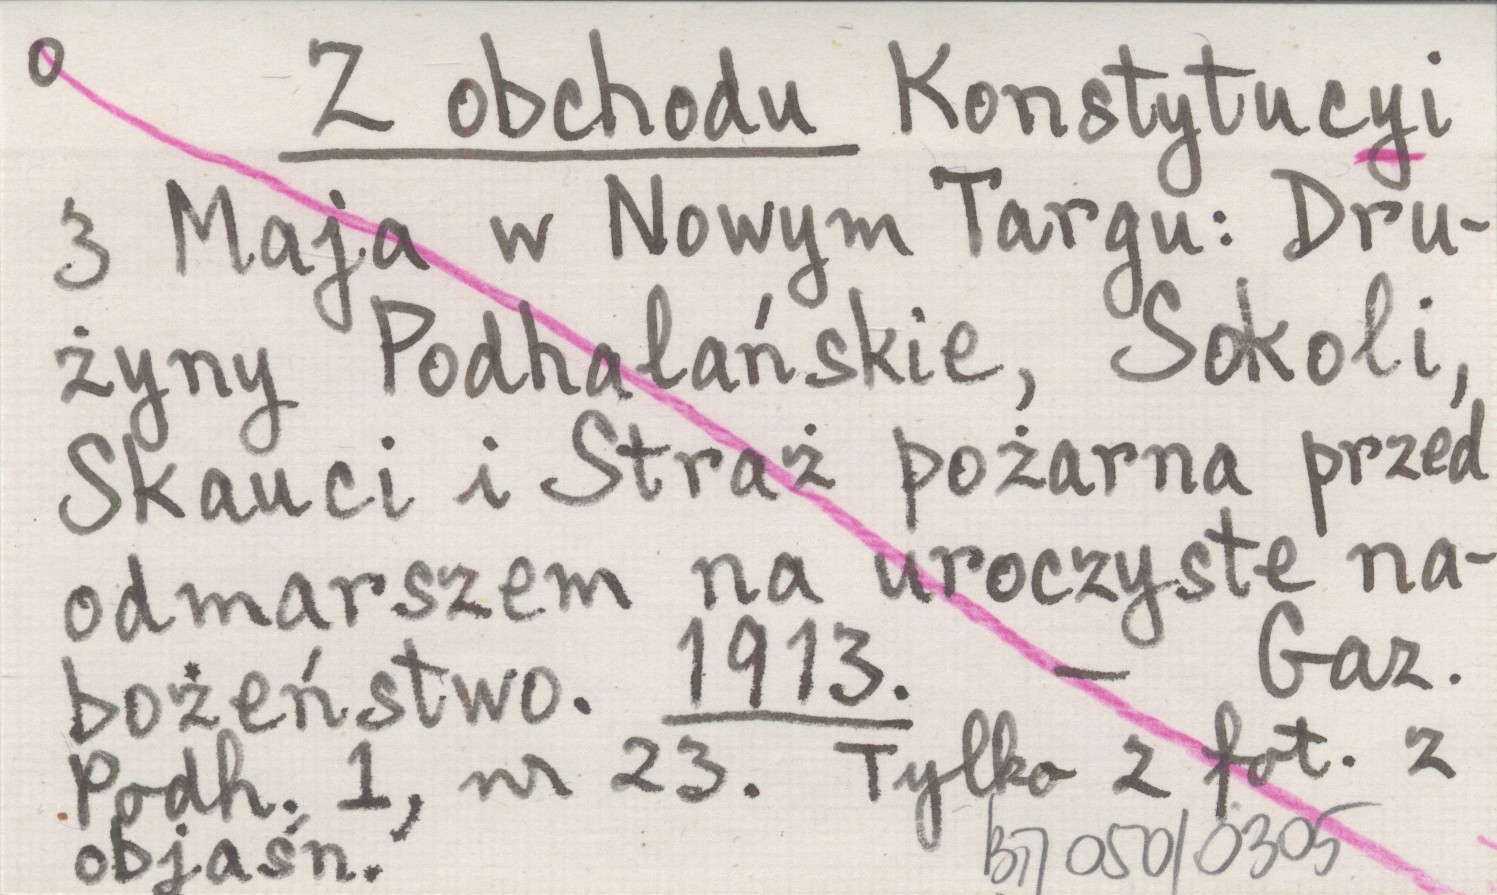 o Z obchodu Konstytucyi
3 Maja w Nowym Targu: Dru-
żyny Podhalańskie, Sokoli,
Skauci i Straż pożarna przed
odmarszem na uroczyste na-
bożeństwo. 1913. — Gaz.
Podh. 1, nr 23. Tylko 2 fot. z
objaśn.
050/0305